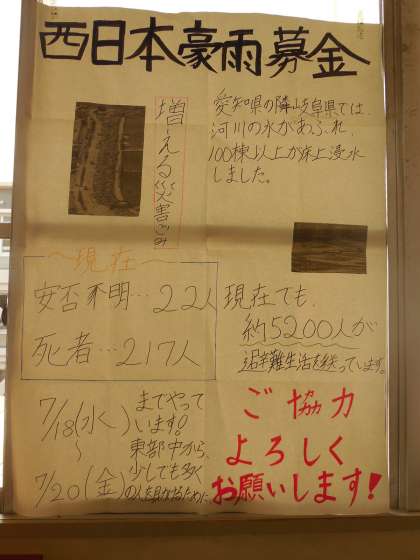 西日本豪雨募金
増える災害ごみ
愛知県の隣岐阜県では、
河川の水があふれ、
100棟以上が床上浸水
しました。
~現在~
安否不明…22人
死者…217人
現在でも、
約5200人が
避難生活を送っています。
7/18(水)
~
7/20(金)
までやって
います!
東部中から、
少しでも多く
の人を助けるために
ご協力
よろしく
お願いします!